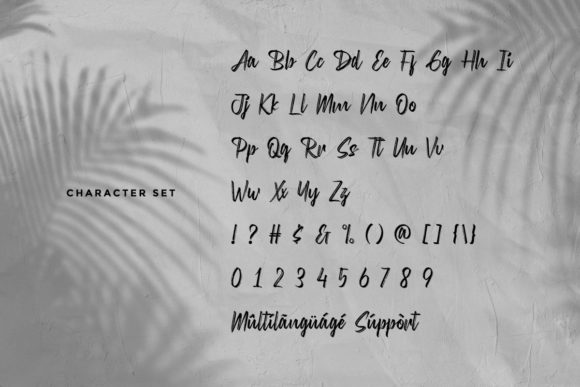 CHARACTER SET
Aa Bb Cc Dd Ee Ff Gg Hh Ii
Jj Kk Ll Mm Nn Oo
Pp Qq Rr Ss Tt Uu Vv
Ww Xx Yy Zz
! ? # $ & % ( ) @ [ ] { \ }
0 1 2 3 4 5 6 7 8 9
Mûltilãngüágé Súppòrt